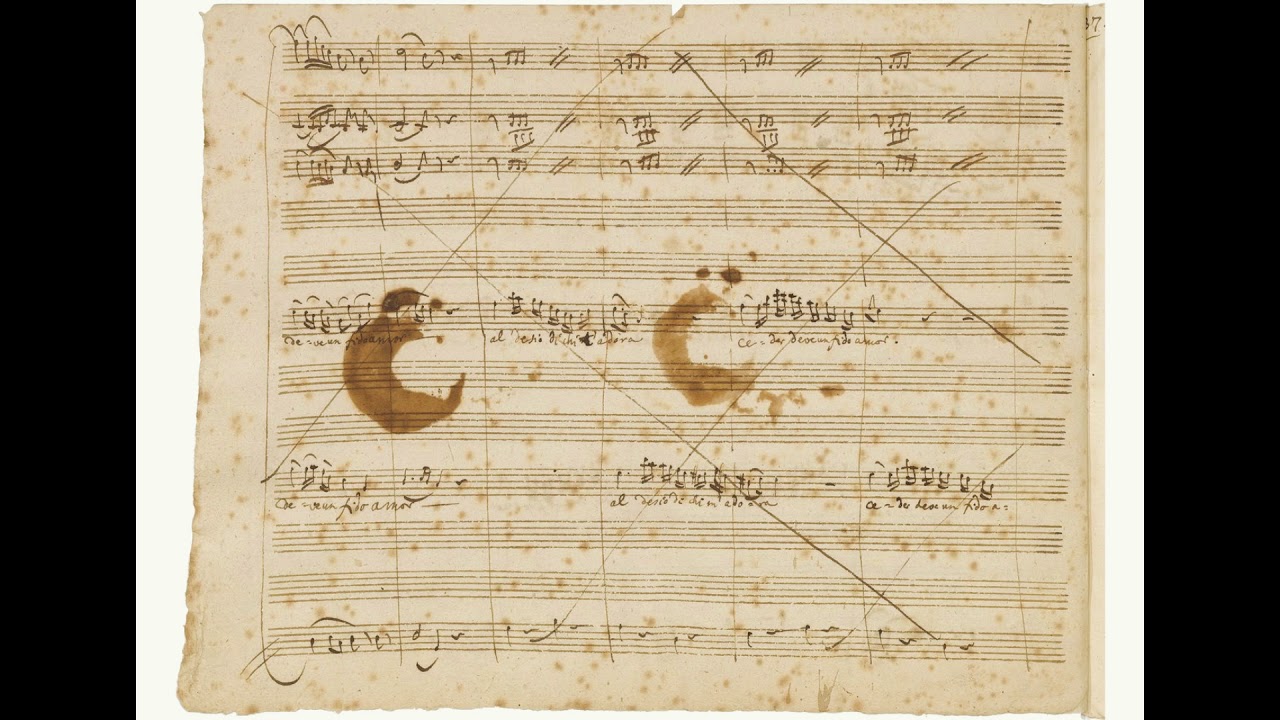 37.
de=ve un fido amor al desio di chi t'adora ce=der deve un fido amor.
de=ve un fido amor al desio di chi m'ado=ra ce=der deve un fido a=